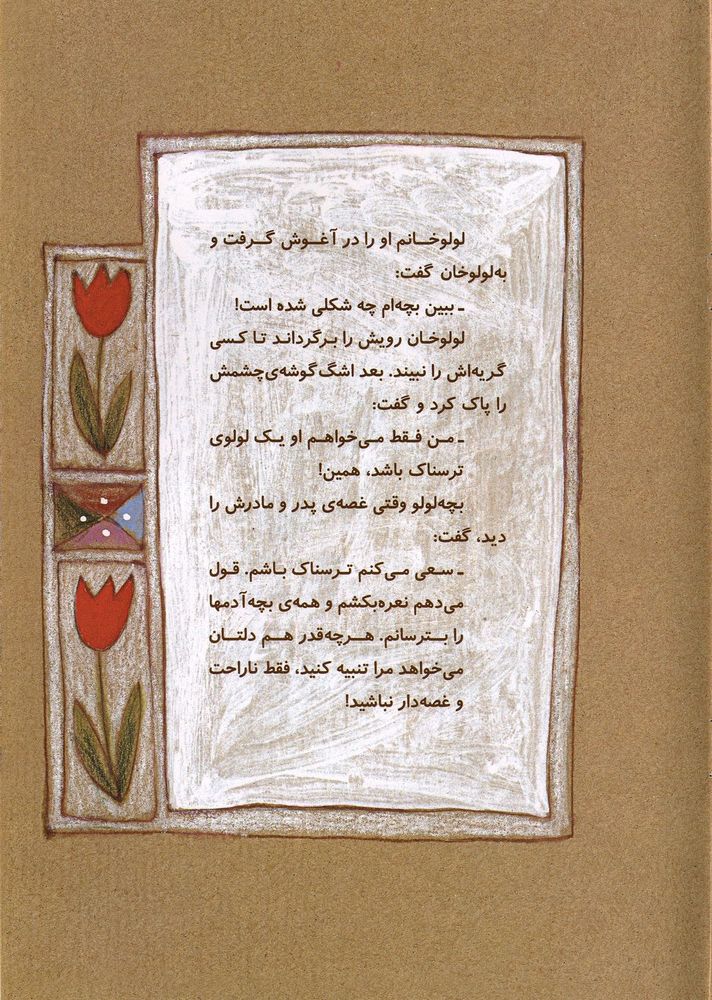 لولوخانم او را در آغوش گرفت و
به‌لولوخان گفت:
ـ ببین بچه‌ام چه شکلی شده است!
لولوخان رویش را برگرداند تا کسی
گریه‌اش را نبیند. بعد اشگ گوشه‌ی‌چشمش
را پاک کرد و گفت:
ـ من فقط می‌خواهم او یک لولوی
ترسناک باشد، همین!
بچه‌لولو وقتی غصه‌ی پدر و مادرش را
دید، گفت:
ـ سعی می‌کنم ترسناک باشم. قول
می‌دهم نعره‌بکشم و همه‌ی بچه‌آدمها
را بترسانم. هرچه‌قدر هم دلتان
می‌خواهد مرا تنبیه کنید، فقط ناراحت
و غصه‌دار نباشید!